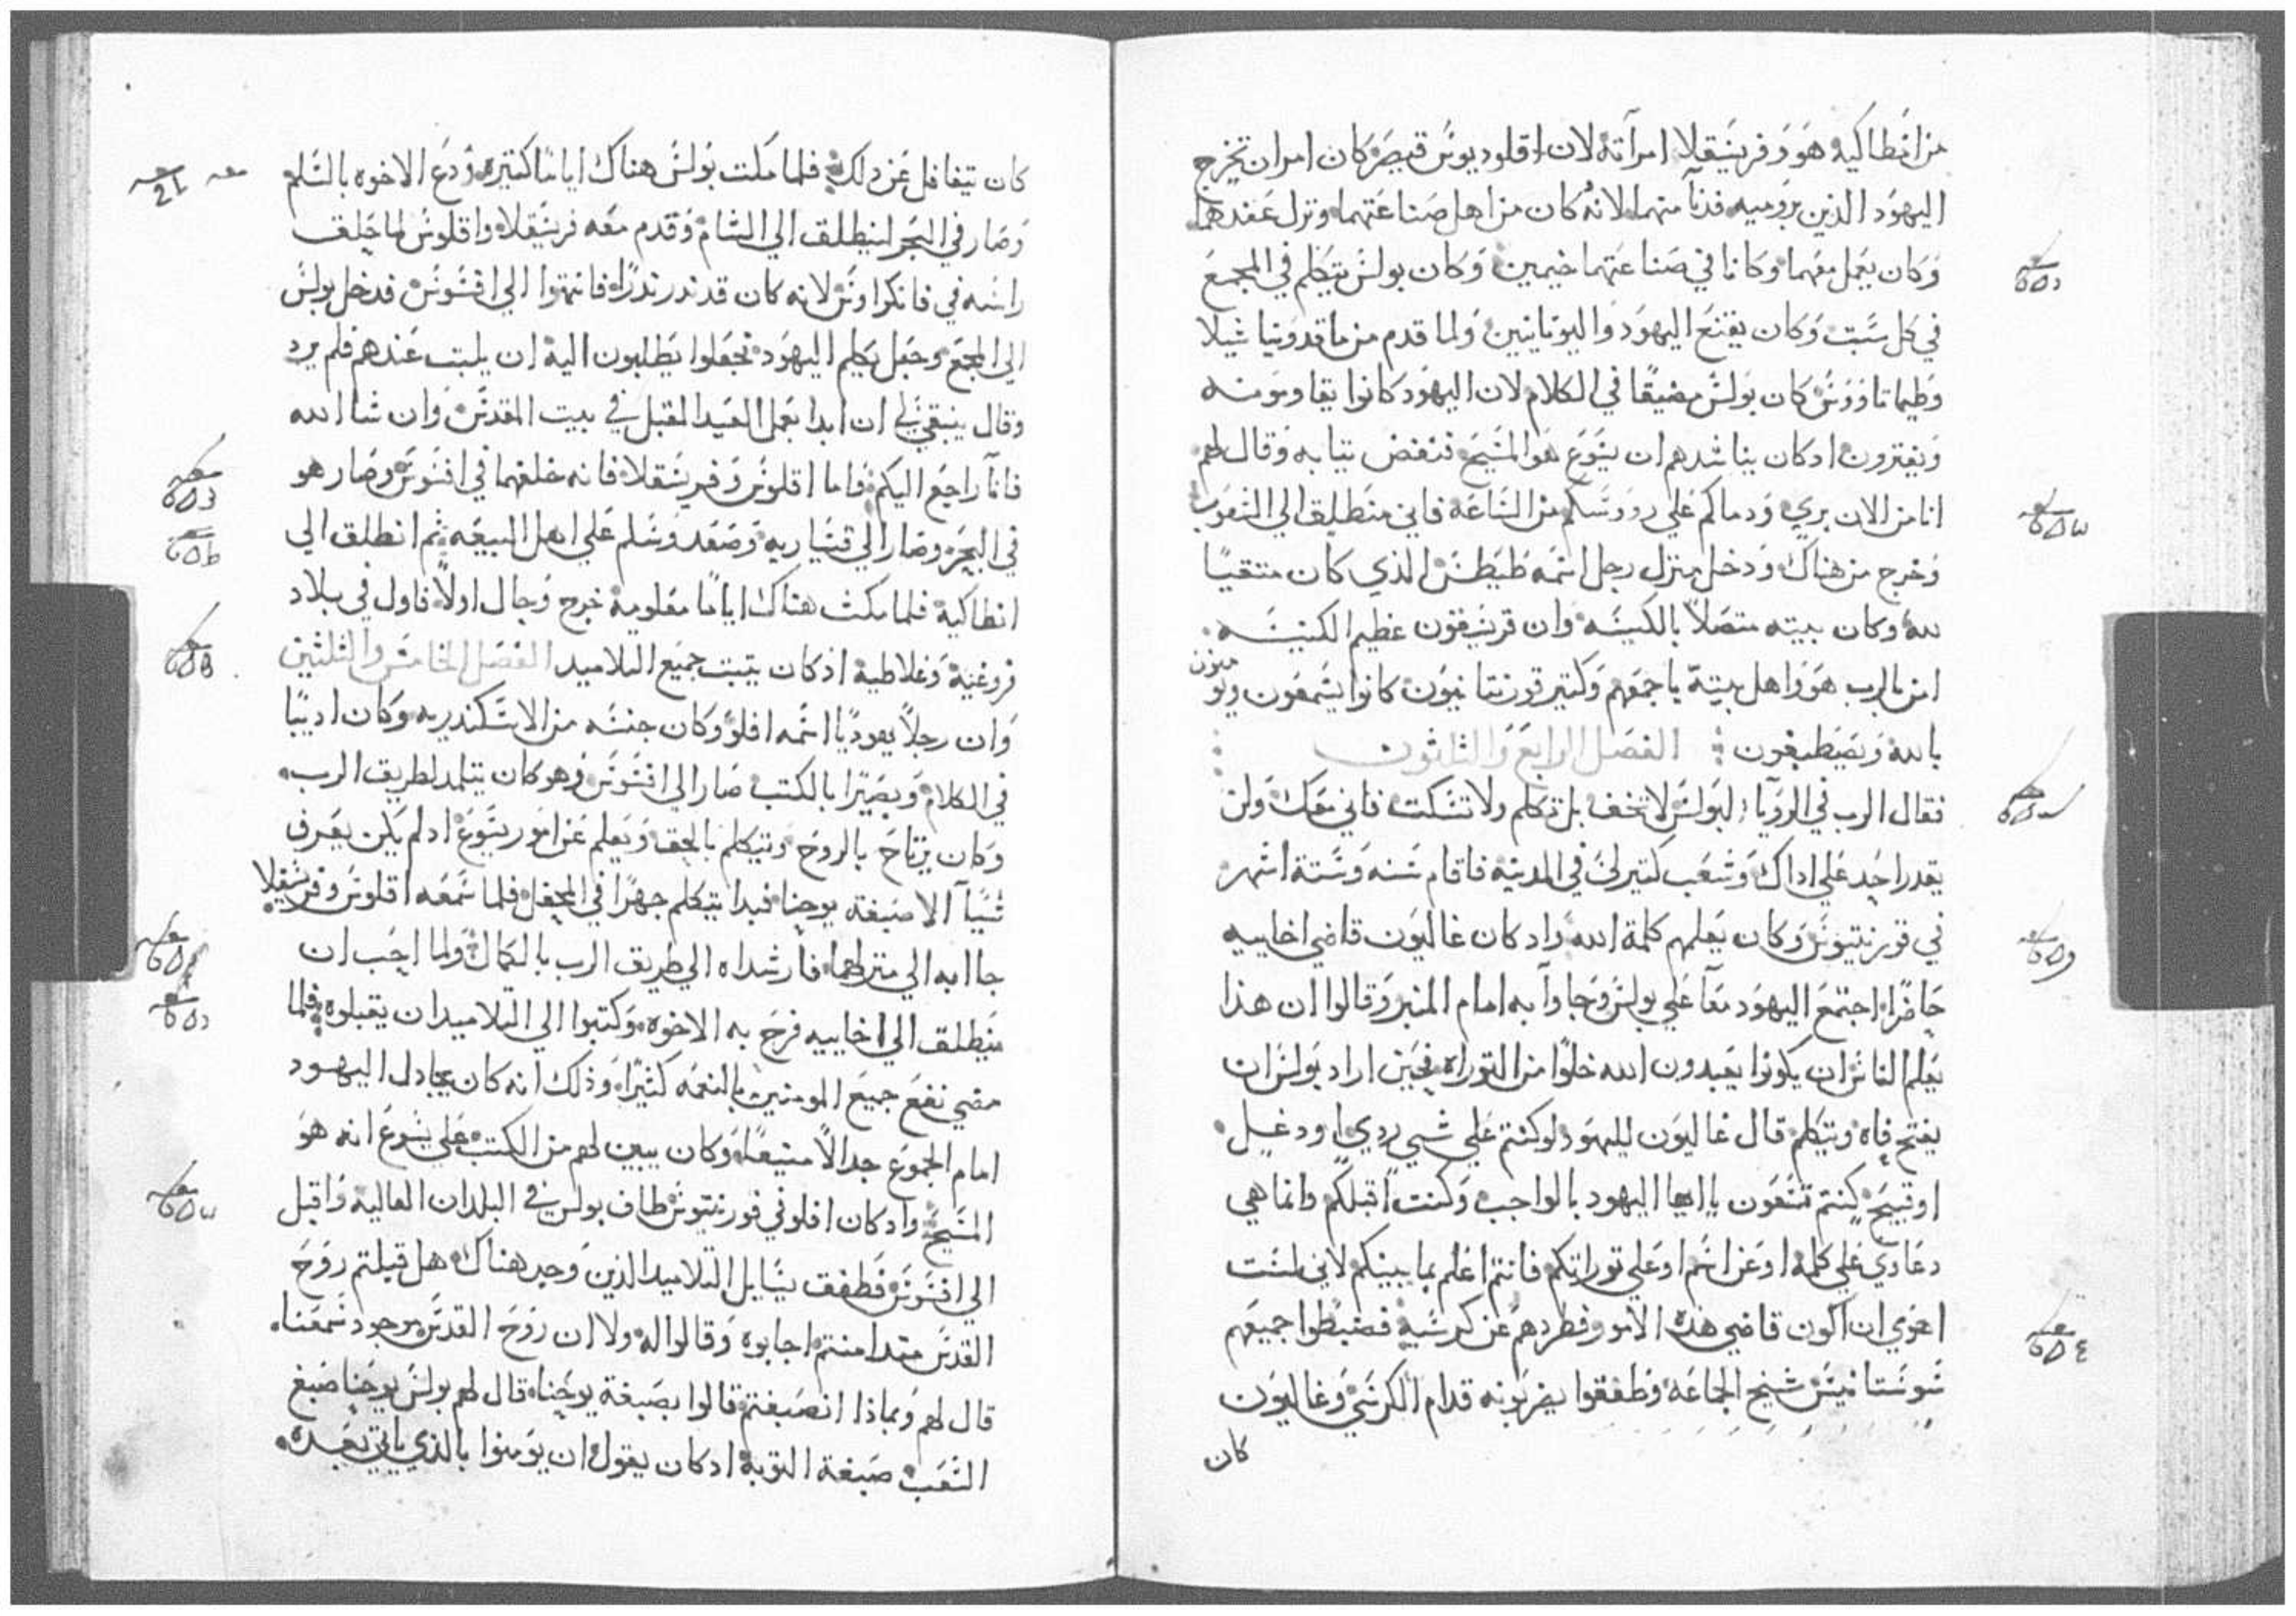 من انطاكيه هو وفريسقلا امرآته لان اقلوديوس قيصر كان امران تخرج
اليهود الذين بروميه فدنآ منهما لانه كان من اهل صناعتهما ونزل عندهما
وكان يعمل معهما وكانا في صناعتهما خيمين وكان بولس يتكلم في المجمع
في كل سبت وكان يقنع اليهود واليونانيين ولما قدم من ماقدونيا شيلا
وطيماتاووس كان بولس مضيقا في الكلام لان اليهود كانوا يقاومونه
ويفترون ادكان يناشدهم ان يسوع هو المسيح فنفض تيابه وقال لهم
انا من الان بري ودماكم علي رووسكم من الساعه فاني منطلق الي الشعوب
وخرج من هناك ودخل منزل رجل اسمه طيطس الذي كان متقيا
لله وكان بيته متصلا بالكنيسه وان قرسفون عظيم الكنيسه
امن بالرب هو واهل بيته باجمعهم وكتير قورنتانيون كانوا يسمعون ويومنون
بالله ويصطبغون الفصل الرابع والثلثون
فقال الرب في الرويآ لبولس لا تخف بل تكلم ولا تسكت فاني معك ولن
يقدر احد علي اداك وشعب كتير لي في المدينه فاقام سنه وستة اشهر
في قورنتيوس وكان يعلمهم كلمة الله واد كان غاليون قاضي اخاييه
حاضرا اجتمع اليهود معآ علي بولس وجاوآ به امام المنبر وقالوا ان هذا
يعلم الناس ان يكونوا يعبدون الله خلوا من التوراه فحين اراد بولس ان
يفتح فاه ويتكلم قال غاليون لليهود لوكنتم علي شي ردي او دغل
او قبيح كنتم تسعون ياايها اليهود بالواجب وكنت اقبلكم وانما هي
دعاوي علي كلمة او عن اسم او علي توراتكم فانتم اعلم بما بينكم لاني لست
اهوي ان اكون قاضي هذه الامور فطردهم عن كرسيه فضبطوا جميعهم
سوستانيس شيخ الجماعه وطفقوا يضربونه قدام الكرسي وغاليون
كان
كان تيغافل عن دلك فلما مكت بولس هناك اياما كتيره ودع الاخوه بالسلم
وصار في البحر لينطلق الي الشام وقدم معه فريسقلا واقلوس لما حلق
راسه في فانكراوس لانه كان قد ندر ندرا فانتهوا الي افسوس فدخل بولس
الي المجمع وجعل يكلم اليهود فجعلوا يطلبون اليه ان يلبت عندهم فلم يرد
وقال ينبغي لي ان ابدا بعمل العيد المقبل في بيت المقدس وان شا الله
فانآ راجع اليكم فاما اقلوس وفريسقلا فانه خلفهما في افسوس وصار هو
في البحر وصار الي قيساريه وصعد وسلم علي اهل البيعه ثم انطلق الي
انطاكية فلما مكث هناك اياما معلومة خرج وجال اولا فاول في بلاد
فروغية وغلاطية اذكان يتبت جميع التلاميد الفصل الخامس والثلثين
وان رجلا يهوديا اسمه افلو وكان جنسه من الاسكندريه وكان اديبا
في الكلام وبصيرا بالكتب صار الي افسوس وهو كان يتلمد لطريق الرب
وكان يرتاح بالروح ويتكلم بالحق ويعلم عن امور يسوع ادلم يكن يعرف
شيآ الا صبغة يوحنا فبدا يتكلم جهرا في المحفل فلما سمعه اقلوس وفريسقلا
جاابه الي منزلهما فارشداه الي طريق الرب بالكمال ولما احب ان
ينطلق الي اخاييه فرح به الاخوه وكتبوا الي التلاميد ان يقبلوه فلما
مضي نفع جميع المومنين بالنعمه كثيرا وذلك انه كان يجادل اليهود
امام الجموع جدالا منيعا وكان يبين لهم من الكتب علي يسوع انه هو
المسيح واد كان افلو في قورنتيوس طاف بولس في البلدان العاليه واقبل
الي افسوس فطفق يسايل التلاميد الذين وجد هناك هل قبلتم روح
القدس مند امنتم اجابوه وقالوا له ولا ان روح القدس موجود سمعنا
قال لهم وبماذا انصبغتم قالوا بصبغة يوحنا قال لهم بولس يوحنا صبغ
الشعب صبغة التوبه ادكان يقول ان يومنوا بالذي ياتي بعده